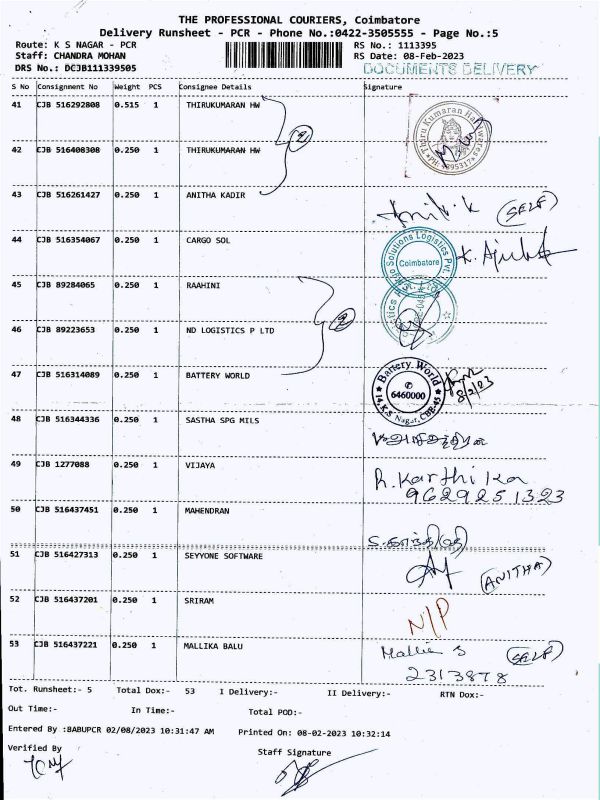 THE PROFESSIONAL COURIERS, Coimbatore
Delivery Runsheet - PCR - Phone No.:0422-3505555 - Page No.:5
Route: K S NAGAR - PCR RS No.: 1113395
Staff: CHANDRA MOHAN RS Date: 08-Feb-2023
DRS No.: DCJB111339505 DOCUMENTS DELIVERY
S No Consignment No Weight PCS Consignee Details Signature
41 CJB 516292808 0.515 1 THIRUKUMARAN HW
Thiru Kumaran Hardwares
42 CJB 516408308 0.250 1 THIRUKUMARAN HW
2
43 CJB 516261427 0.250 1 ANITHA KADIR
(SELF)
44 CJB 516354067 0.250 1 CARGO SOL
Solutions Logistics Pvt. Coimbatore
45 CJB 89284065 0.250 1 RAAHINI
46 CJB 89223653 0.250 1 ND LOGISTICS P LTD
2
47 CJB 516314089 0.250 1 BATTERY WORLD
Battery World
6460000
14, K.S. Nagar, CBE-45
8/2/23
48 CJB 516344336 0.250 1 SASTHA SPG MILS
49 CJB 1277088 0.250 1 VIJAYA
R. Karthika
9629251323
50 CJB 516437451 0.250 1 MAHENDRAN
51 CJB 516427313 0.250 1 SEYYONE SOFTWARE
(ANITHA)
52 CJB 516437201 0.250 1 SRIRAM
N/P
53 CJB 516437221 0.250 1 MALLIKA BALU
(SELF)
2313878
Tot. Runsheet:- 5 Total Dox:- 53 I Delivery:- II Delivery:- RTN Dox:-
Out Time:- In Time:- Total POD:-
Entered By :BABUPCR 02/08/2023 10:31:47 AM Printed On: 08-02-2023 10:32:14
Verified By Staff Signature